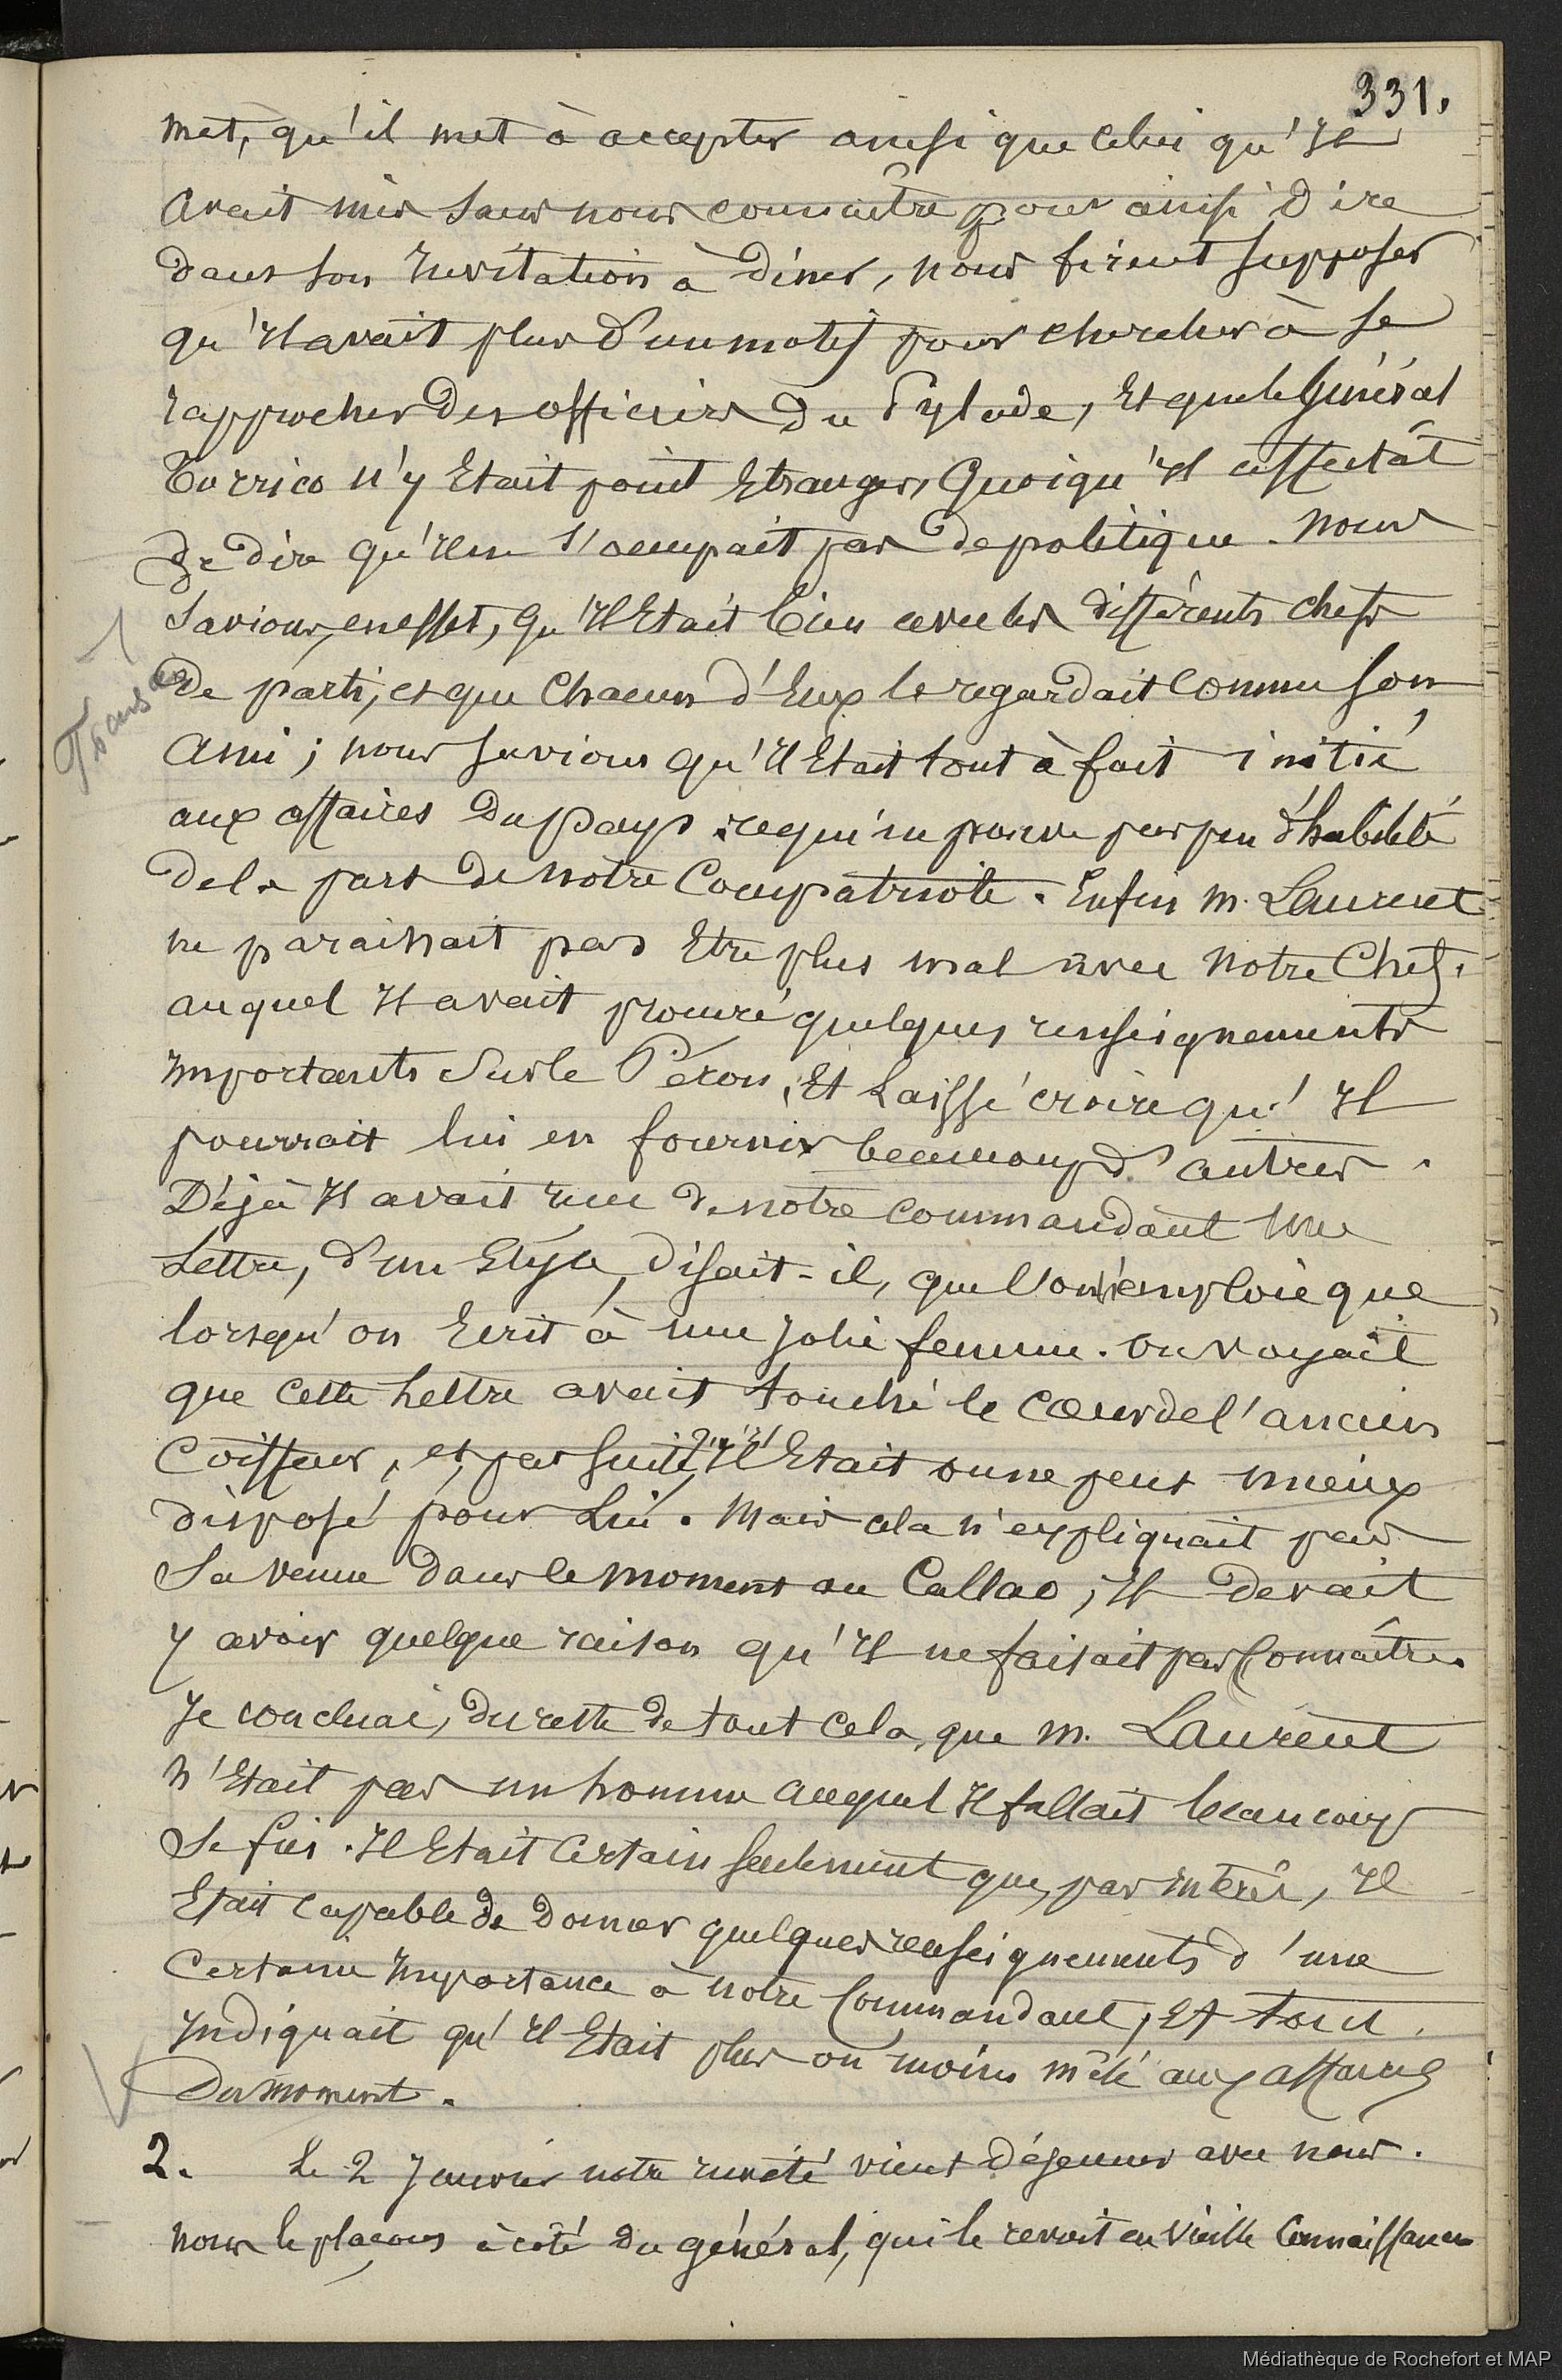 331.
met, qu'il met à accepter ainsi que celui qu'Il
avait mis sans nous connaître pour ainsi Dire
dans son Invitation à Diner, nous firent supposer
qu'Il avait plus d'un motif pour chercher à se
rapprocher des officiers du Pylade, Et que le Général
Torrico n'y Etait point Etranger, Quoiqu'Il affectât
De dire qu'Il ne s'occupait pas de politique. Nous
Savions, en effet, qu'Il Etait bien avec les différents chefs
De parti, et que chacun d'Eux le regardait comme son
Ami ; nous savions qu'Il Etait tout à fait initié
aux affaires du Pays. ce qui ne prouve pas peu d'habileté
de la part de notre Compatriote. Enfin M. Laurent
ne paraissait pas Etre plus mal avec notre Chef.
auquel Il avait procuré quelques renseignements
Importants sur le Pérou, Et Laissé croire qu'Il
pourrait lui en fournir beaucoup d'autres.
Déjà Il avait reçu de notre Commandant Une
Lettre, d'un Style, disait-il, que l'on n'emploie que
lorsqu'on Ecrit à une Jolie femme. On voyait
que cette Lettre avait touché le cœur de l'ancien
Coiffeur, et, par suite, qu'Il Etait on ne peut mieux
disposé pour Lui. Mais cela n'expliquait pas
Sa venue dans le moment au Callao ; Il Devait
y avoir quelque raison qu'Il ne faisait pas Connaître.
Je conclus, du reste de tout cela, que M. Laurent
n'Etait pas un homme auquel Il fallait beaucoup
Se fier. Il Etait Certain seulement que, par intérêt, Il
Etait capable de Donner quelques renseignements d'une
Certaine Importance à notre Commandant, Et tout
Indiquait qu'Il Etait plus ou moins mêlé aux affaires
Du moment.
2. Le 2 Janvier notre invité vient Déjeuner avec nous.
nous le plaçons à côté du général, qui le revoit en vieille Connaissance
Médiathèque de Rochefort et MAP